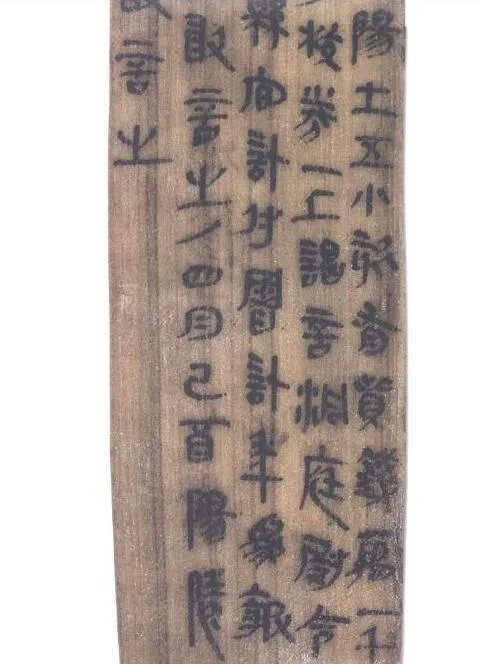 陽士五小欬有貲錢萬一千
校券一上謁言洞庭尉令
縣官計付署計年為報
敢言之／四月己酉陽陵
敢言之